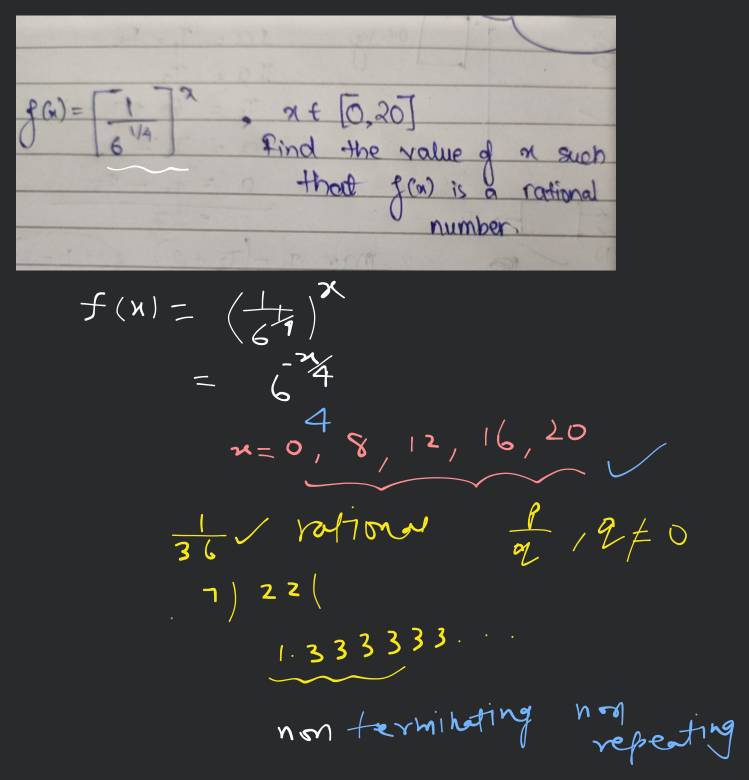 f(x) = [1/6^{1/4}]^x . x ∈ [0,20]
Find the value of x such
that f(x) is a rational
number.
f(x) = (1/6^{1/4})^x
= 6^{-x/4}
4
x = 0, 8, 12, 16, 20 ✓
1/36 ✓ rational p/q, q ≠ 0
7) 22 (
1.333333...
non terminating non
repeating